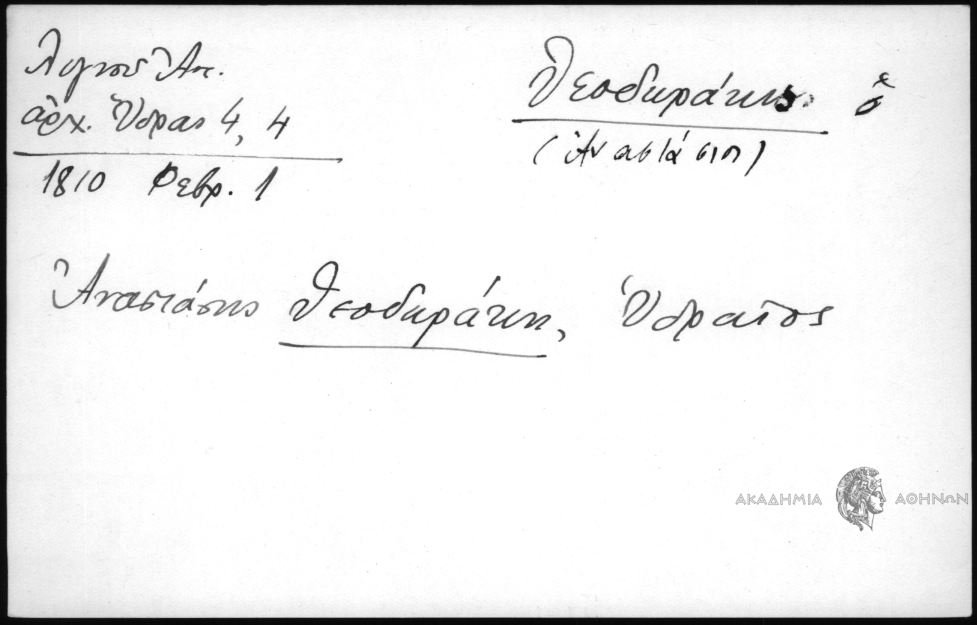 Λιγνοῦ Ἀντ.
ἀρχ. Ὕδρας 4, 4
1810 Φεβρ. 1
Θεοδωράκης ὁ
(Ἀναστάσιος)
Ἀναστάσης Θεοδωράκη, Ὑδραῖος
ΑΚΑΔΗΜΙΑ ΑΘΗΝΩΝ